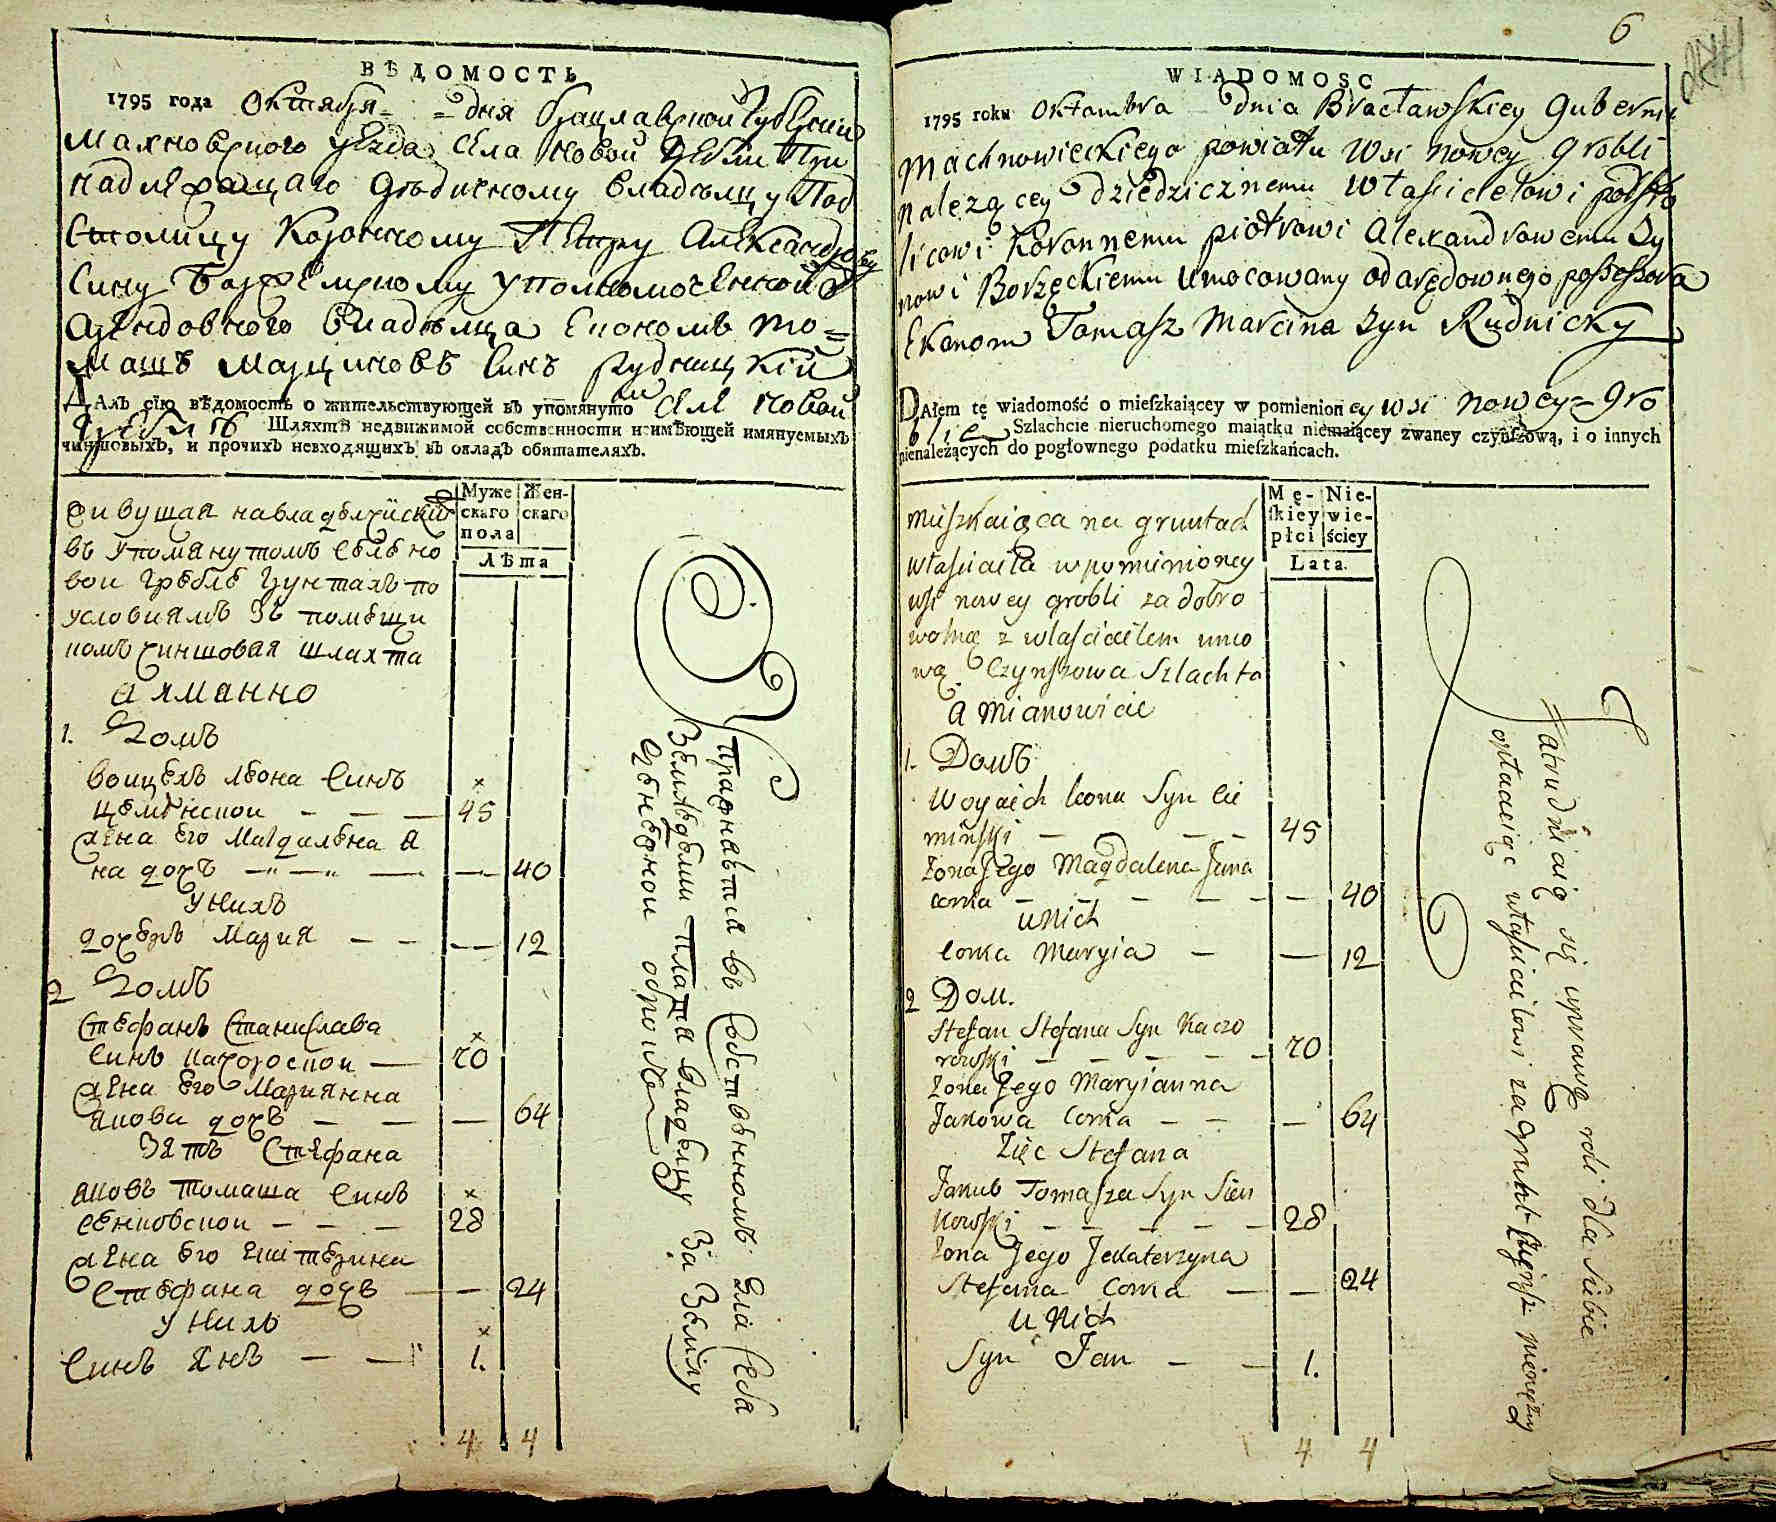 ВѢДОМОСТЬ
1795 года Октября = = дня Брацлавской Губернии
Махновского уезда села Новой Гребли При
надлежащаго дѣдичному владѣлцу Под
столицу Коронному Петру Александрову
сину Боржемскому уполномоченной
арендовного владѣлца Економъ То=
машъ Марциновъ синъ Рудницкій
ДАлъ сїю вѣдомость о жительствующей въ упомянутой селе Новой
Гребли Шляхтѣ недвижимой собственности неимѣющей имянуемыхъ
чиншовыхъ, и прочихъ невходящихъ въ окладъ обитателяхъ.
Муже
скаго
пола
Жен-
скаго
Лѣта
живущая на владѣлческих
въ упомянутомъ селѣ но
вои Греблѣ Грунтахъ по
условиямъ зъ помѣщи
комъ чиншовая шляхта
а именно
1. Домъ
Воицехъ Леона синъ
Цеминскои — — — 45
жена его Магдалена Я
на дочь — — — — 40
у нихъ
дочерь Мария — — — 12
2 Домъ
Стефанъ Станислава
синъ Качоровскои — 70
жена его Марианна
Якова дочь — — — 64
Зять Стефана
Яковъ Томаша синъ
Сенковскои — — — 28
жена его Екатерина
Стефана дочь — — 24
у нихъ
синъ Янъ — — 1.
4 4
упражняется въ собственномъ для себя
земледелии платя владелцу за землю
ценежной оброкъ
6
WIADOMOSC
1795 roku Oktambra dnia Bracławskiey Gubernii
Machnowieckiego powiatu Wsi Nowey Grobli
należącey dziedzicznemu Włascicielowi podsto
licowi Koronnemu piotrowi Alexandrowemu Sy
nowi Borzęckiemu Umocowany od arędownego possessora
Ekonom Tomasz Marcina Syn Rudnicky
DAłem tę wiadomość o mieſzkaiącey w pomienioney wsi Nowey=Gro
bli Szlachcie nieruchomego maiątku niemaiącey zwaney czynſzową, i o innych
nienależących do pogłownego podatku mieſzkańcach.
Mę-
ſkiey
płci
Nie-
wie-
ściey
Lata
Mieszkaiąca na gruntach
własciciela w pomienioney
wsi nowey grobli za dobro
wolną z własicielem umo
wą Czynszowa Szlachta
a Mianowicie
1. Домъ
Woyciech Leona Syn Cie
miński — — — 45
Żona Jego Magdalena Jana
corka — — — — — 40
u Nich
Corka Maryia — — 12
2 Дом.
Stefan Stefana Syn Kaczo
rowski — — — — — 70
Żona Jego Maryianna
Jakowa Corka — — — 64
Zięc Stefana
Jakub Tomasza Syn Sien
kowski — — — — — 28
Żona Jego Jekaterzyna
Stefana Corka — — 24
u Nich
Syn Jan — — 1.
4 4
Zatrudniaią się uprawą roli dla siebie
opłacaiąc własicielowi za grunt czynsz pienięzny